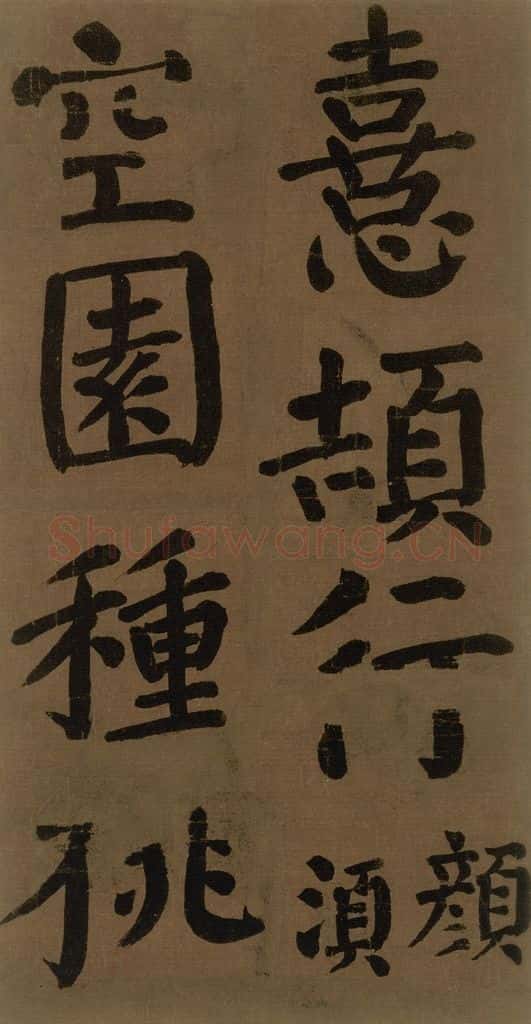 憙頡行
顔
湏
空園種桃
Shufawang.CN